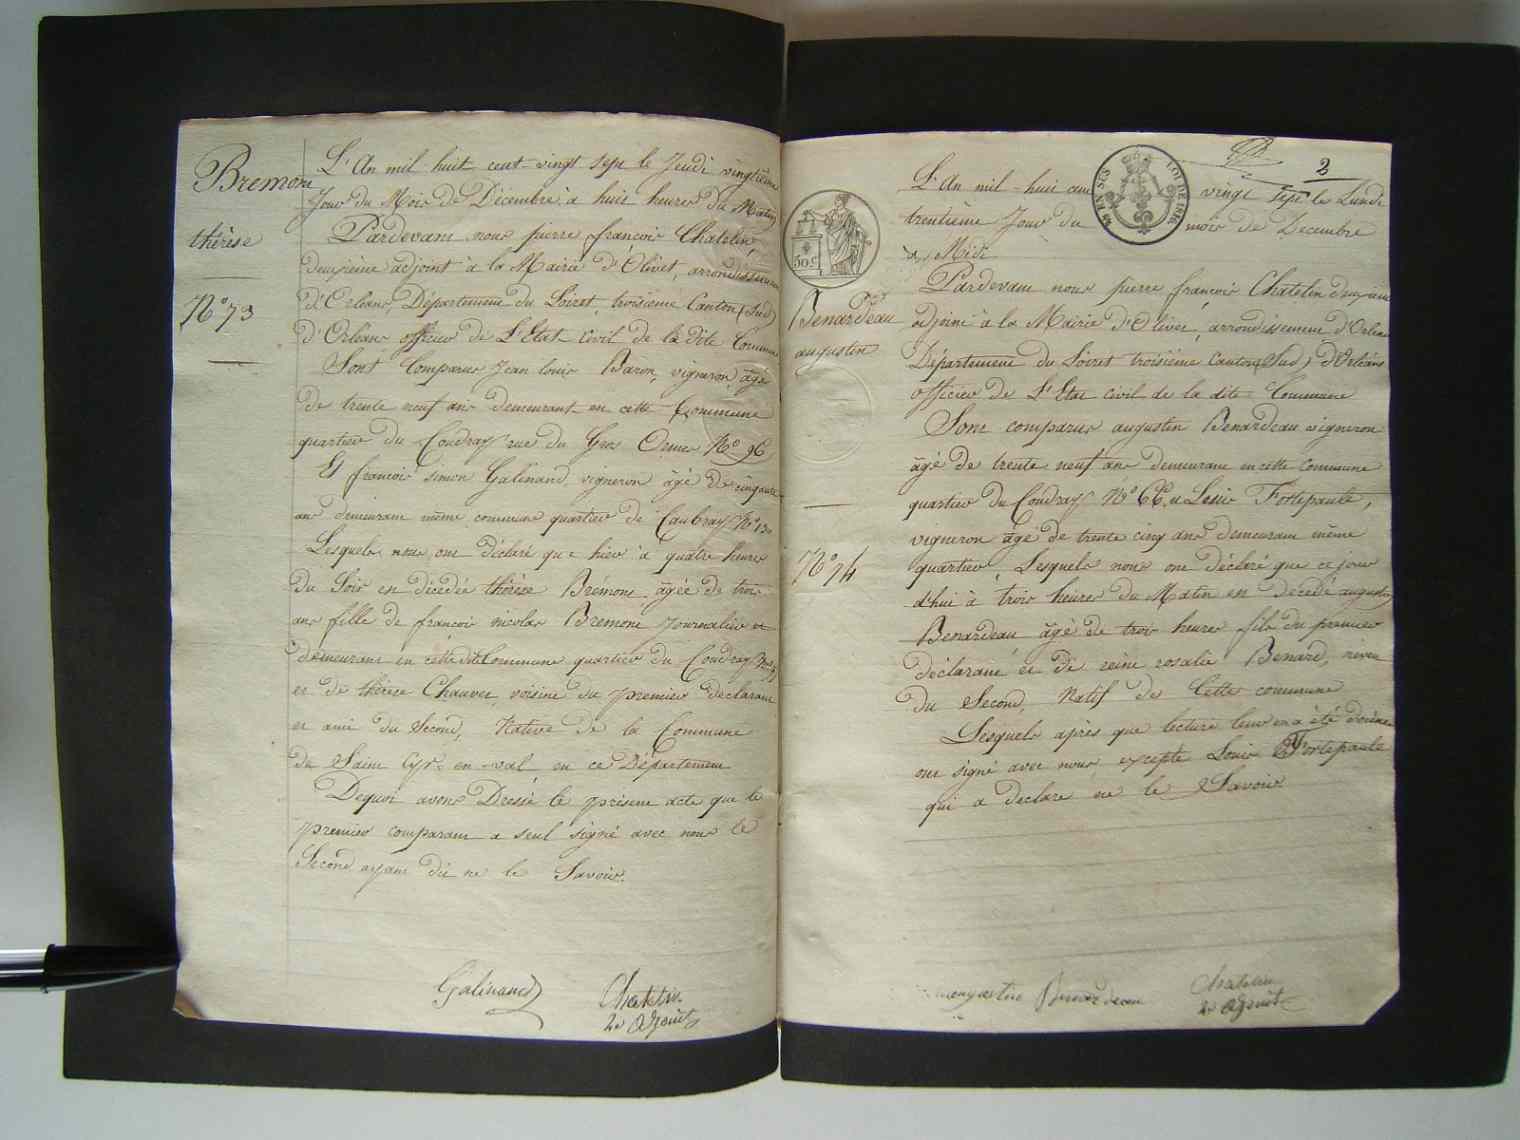 Bremont
thérèse
N.º 73
L'An mil-huit cent-vingt sept le Jeudi vingtième
Jour du Mois de Décembre à huit heures du Matin
Pardevant nous pierre françois Chatelin,
deuxième adjoint à la Mairie d'Olivet, arrondissement
d'Orléans, Département du Loiret, troisième Canton (Sud)
d'Orléans officier de L'Etat civil de la dite Commune
Sont Comparus Jean louis Baron, vigneron âgé
de trente neuf ans demeurant en cette Commune
quartier du Coudray rue du Gros Orme N.º 96
Et françois simon Galinand, vigneron âgé de cinquante
ans demeurant même commune quartier de Caubray N.º
Lesquels nous ont déclaré que hier à quatre heures
du Soir est décédée thérèse Brémont âgée de trois
ans fille de françois nicolas Bremont Journalier et
demeurant en cette dite Commune quartier du Coudray
et de thérèse Chauvet, voisine du premier déclarant
et amie du Second, Native de la Commune
de Saint Cyr-en-val en ce Département
Dequoi avons Dressé le présent acte que le
premier comparant a seul signé avec nous le
Second ayant dit ne le Savoir.
Galinand
Chatelin
2e Adjoint
2
50 c
LOI DE 1816
Benardeau
augustin
N.º 74
L'An mil-huit cent vingt sept le Lundi
trentième Jour du mois de Decembre
à Midi
Pardevant nous pierre françois Chatelin deuxieme
adjoint à la Mairie d'Olivet, arrondissement d'Orléans
Département du Loiret troisième Canton (Sud) d'Orléans
officier de L'Etat civil de la dite Commune
Sont comparus augustin Benardeau vigneron
âgé de trente neuf ans demeurant en cette commune
quartier du Coudray N.º 66, et Louis Fortepaule,
vigneron âgé de trente cinq ans demeurant même
quartier, Lesquels nous ont déclaré que ce jour
d'hui à trois heures du Matin est décédé augustin
Benardeau âgé de trois heures fils du premier
déclarant et de reine rosalie Benard, neveu
du Second, Natif de Cette commune
Lesquels après que lecture leur en a été donnée
ont signé avec nous excepté Louis Fortepaule
qui a declaré ne le Savoir
augustin Benardeau
Chatelin
2e Adjoint